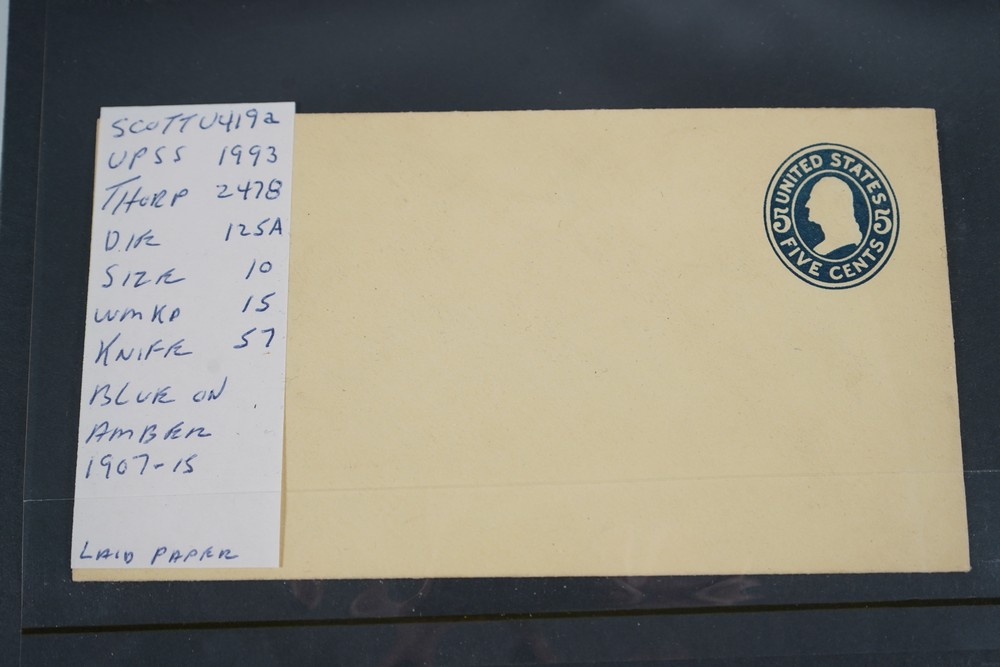 SCOTT U419a
UPSS 1993
THORP 2478
DIE 125A
SIZE 10
WMKD 15
KNIFE 57
BLUE ON
AMBER
1907-15
LAID PAPER
UNITED STATES
5 5
FIVE CENTS